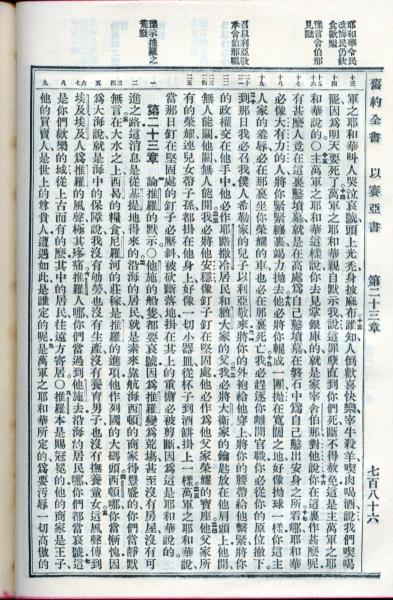 舊約全書　以賽亞書　第二十三章　七百八十六
耶和華令民
改悔民仍飲
食歡樂
豫言舍伯那
見黜
召以利亞敬
承舍伯那職
豫示推羅之
荒廢
軍之耶和華叫人哭泣哀號頭上光禿身披麻布誰知人倒歡喜快樂宰牛殺羊喫肉喝酒說我們喫喝
罷因爲明天要死了萬軍之耶和華親自默示我說這罪孽直到你們死斷不得赦免這是主萬軍之耶
和華說的〇主萬軍之耶和華這樣說你去見掌銀庫的就是家宰舍伯那對他說你在這裏作甚麽呢
有甚麽人竟在這裏鑿墳墓就是在高處爲自己鑿墳墓在磐石中爲自己鑿出安身之所看哪耶和華
必像大有力的人將你緊緊纏裹竭力拋去他必將你輥成一團拋在寬闊之地好像拋球一樣你這主
人家的羞辱必在那裏坐你榮耀的車也必在那裏死亡我必趕逐你離開官職你必從你的原位撤下
到那日我必召我僕人希勒家的兒子以利亞敬來將你的外袍給他穿上將你的腰帶給他繫緊將你
的政權交在他手中他必作耶路撒冷居民和猶大家的父我必將大衛家的鑰匙放在他肩頭上他開
無人能關他關無人能開我必將他安穩像釘子釘在堅固處他必作爲他父家榮耀的寶座他父家所
有的榮耀連兒女帶子孫都掛在他身上好像一切小器皿從杯子到酒餅掛上一樣萬軍之耶和華說
當那日釘在堅固處的釘子必壓斜被砍斷落地掛在其上的重擔必被剪斷因爲這是耶和華說的
第二十三章　論推羅的默示〇他施的船隻都要哀號因爲推羅變爲荒場甚至沒有房屋沒有可
進之路這消息是從基提地得來的沿海的居民就是素來靠航海西頓的商家得豐盛的你們當靜默
無言在大水之上西曷的糧食尼羅河的莊稼是推羅的進項他作列國的大碼頭西頓哪你當慚愧因
爲大海說就是海中的保障說我沒有劬勞也沒有生產沒有養育男子也沒有撫養童女這風聲傳到
埃及埃及人爲推羅的風聲極其疼痛推羅人哪你們當過到他施去沿海的居民哪你們都當哀號這
是你們歡樂的城從上古而有的麽其中的居民往遠方寄居〇推羅本是賜冠冕的他的商家是王子
他的買賣人是世上的尊貴人遭遇如此是誰定的呢是萬軍之耶和華所定的爲要污辱一切高傲的